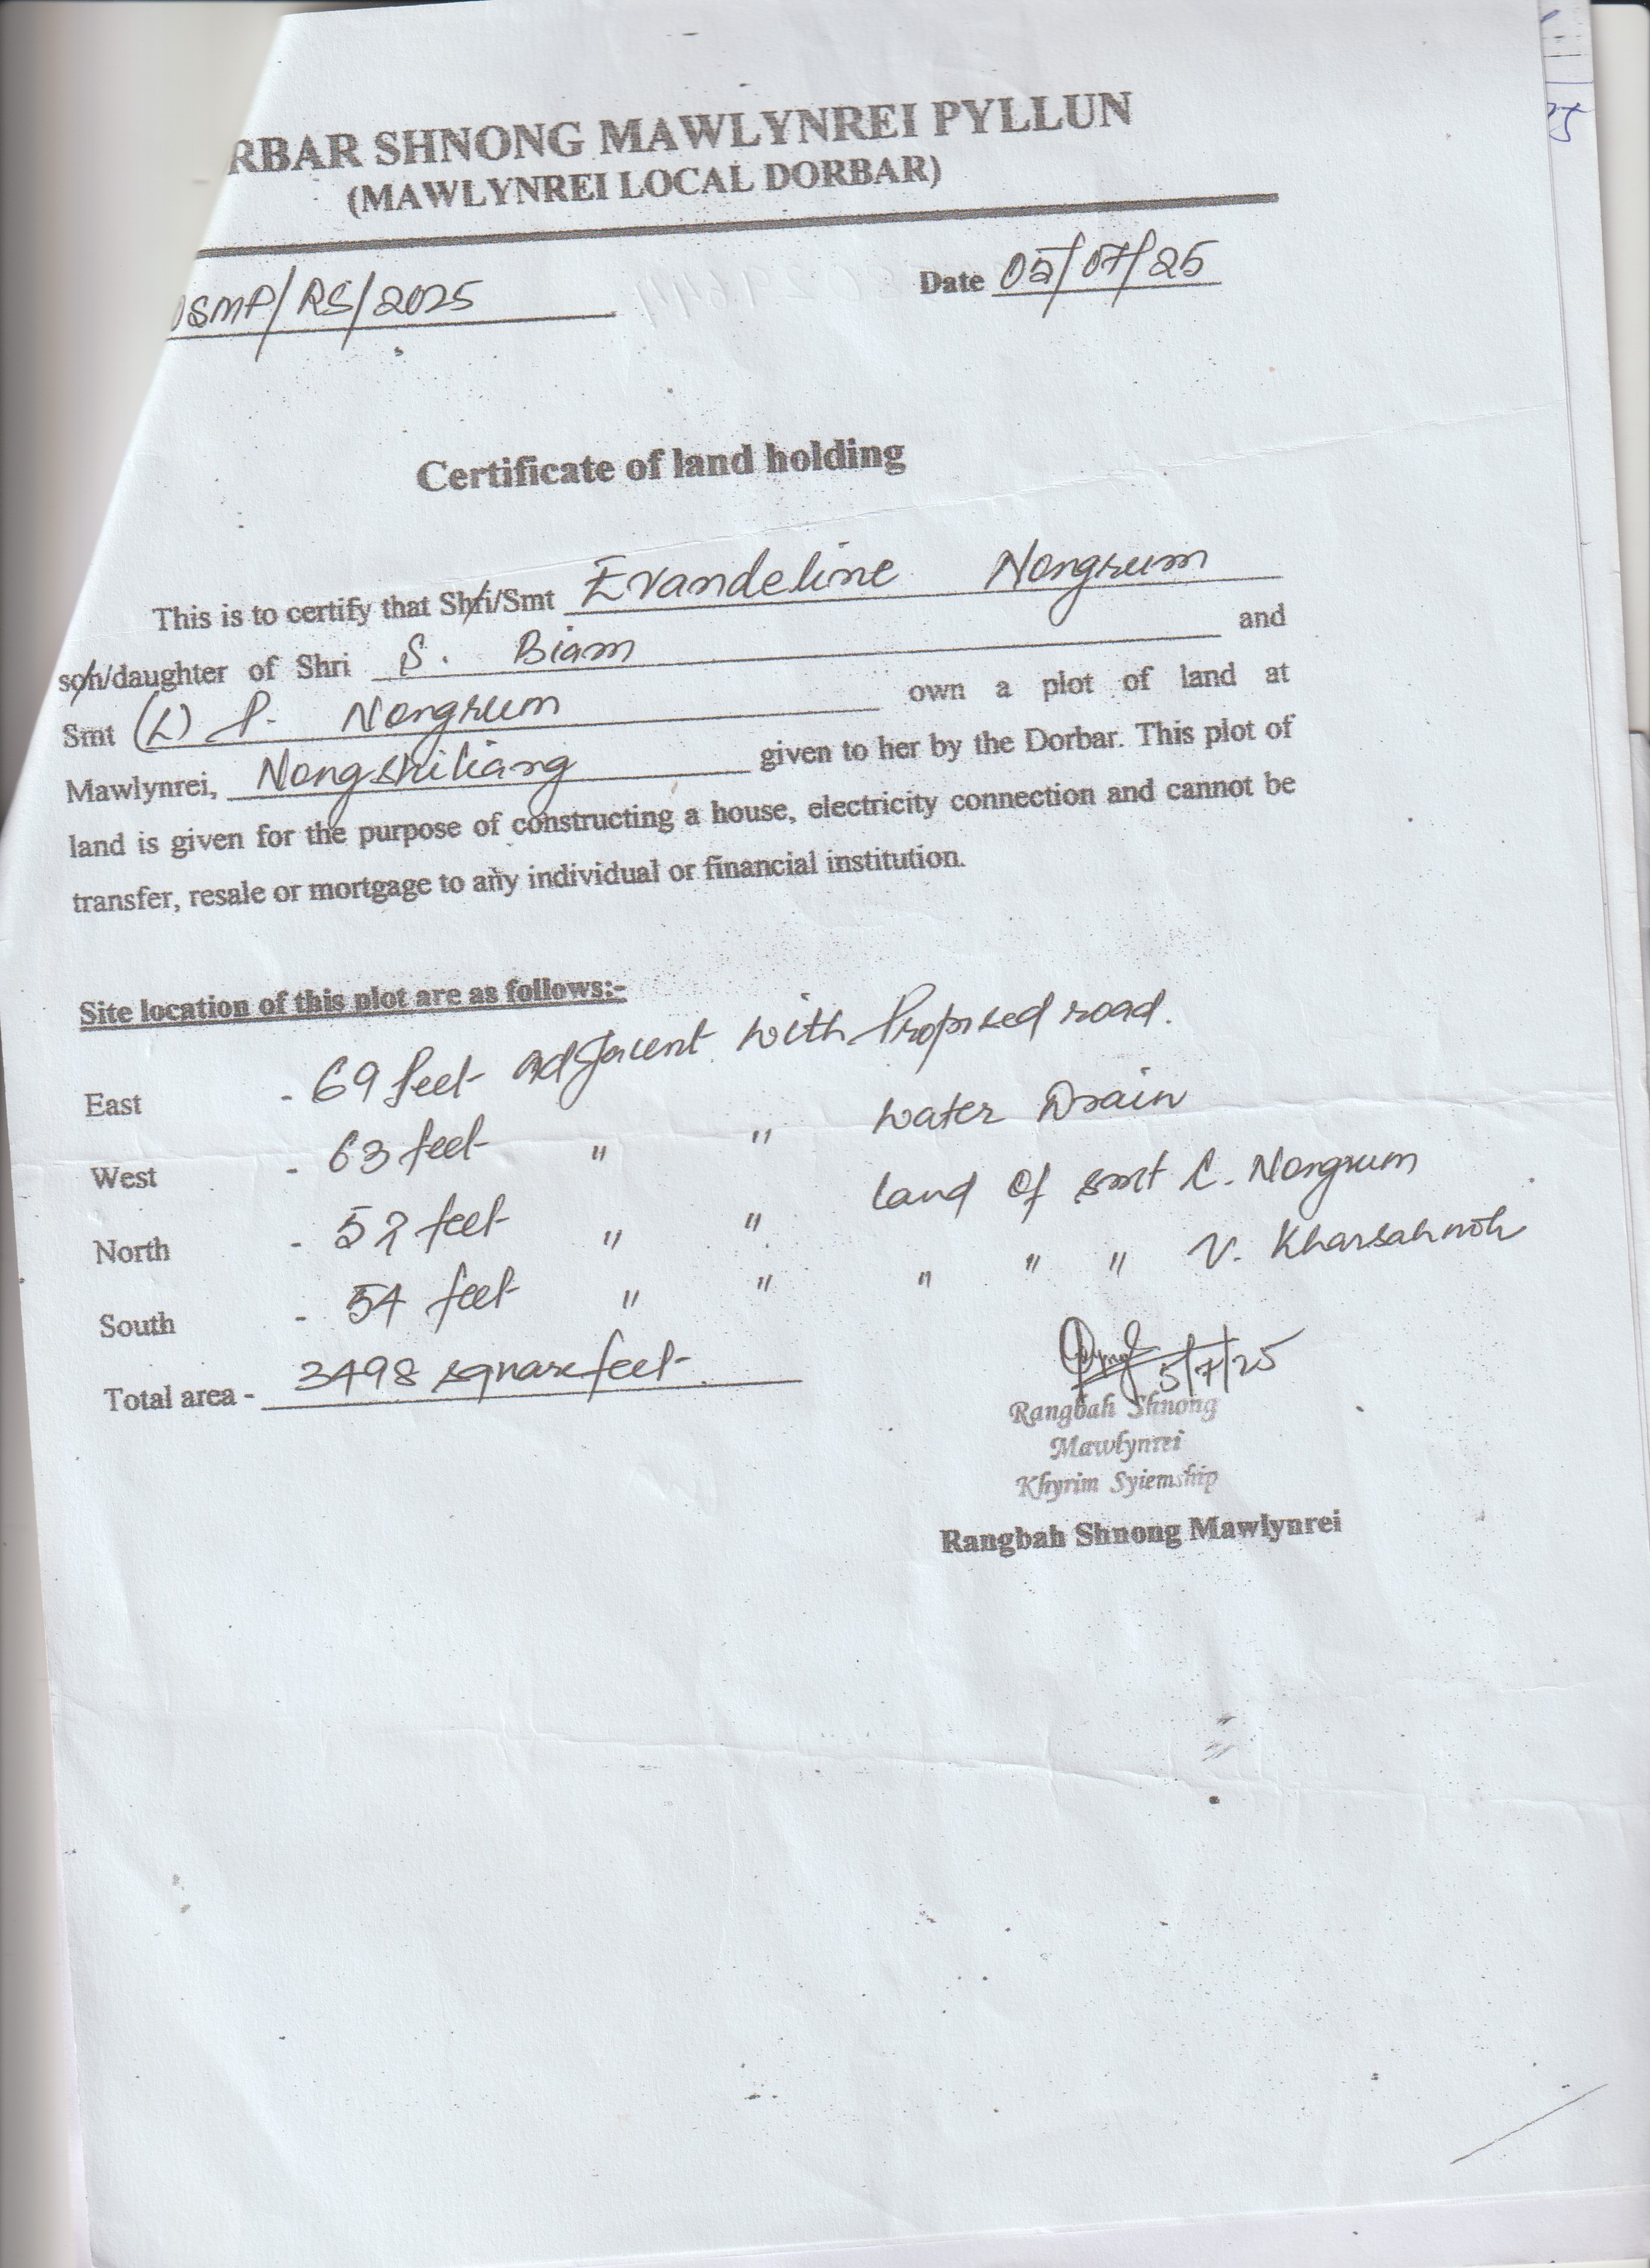 RBAR SHNONG MAWLYNREI PYLLUN
(MAWLYNREI LOCAL DORBAR)
DSMP/RS/2025 Date 05/07/25
Certificate of land holding
This is to certify that Shri/Smt Evandeline Nongrum
son/daughter of Shri S. Biam and
Smt (L) P. Nongrum own a plot of land at
Mawlynrei, Nongshiliang given to her by the Dorbar. This plot of
land is given for the purpose of constructing a house, electricity connection and cannot be
transfer, resale or mortgage to any individual or financial institution.
Site location of this plot are as follows:-
East - 69 feet adjacent with Proposed road.
West - 63 feet " " water Drain
North - 52 feet " " land of smt C. Nongrum
South - 54 feet " " " " " V. Kharsahnoh
Total area - 3498 square feet
5/7/25
Rangbah Shnong
Mawlynrei
Khyrim Syiemship
Rangbah Shnong Mawlynrei